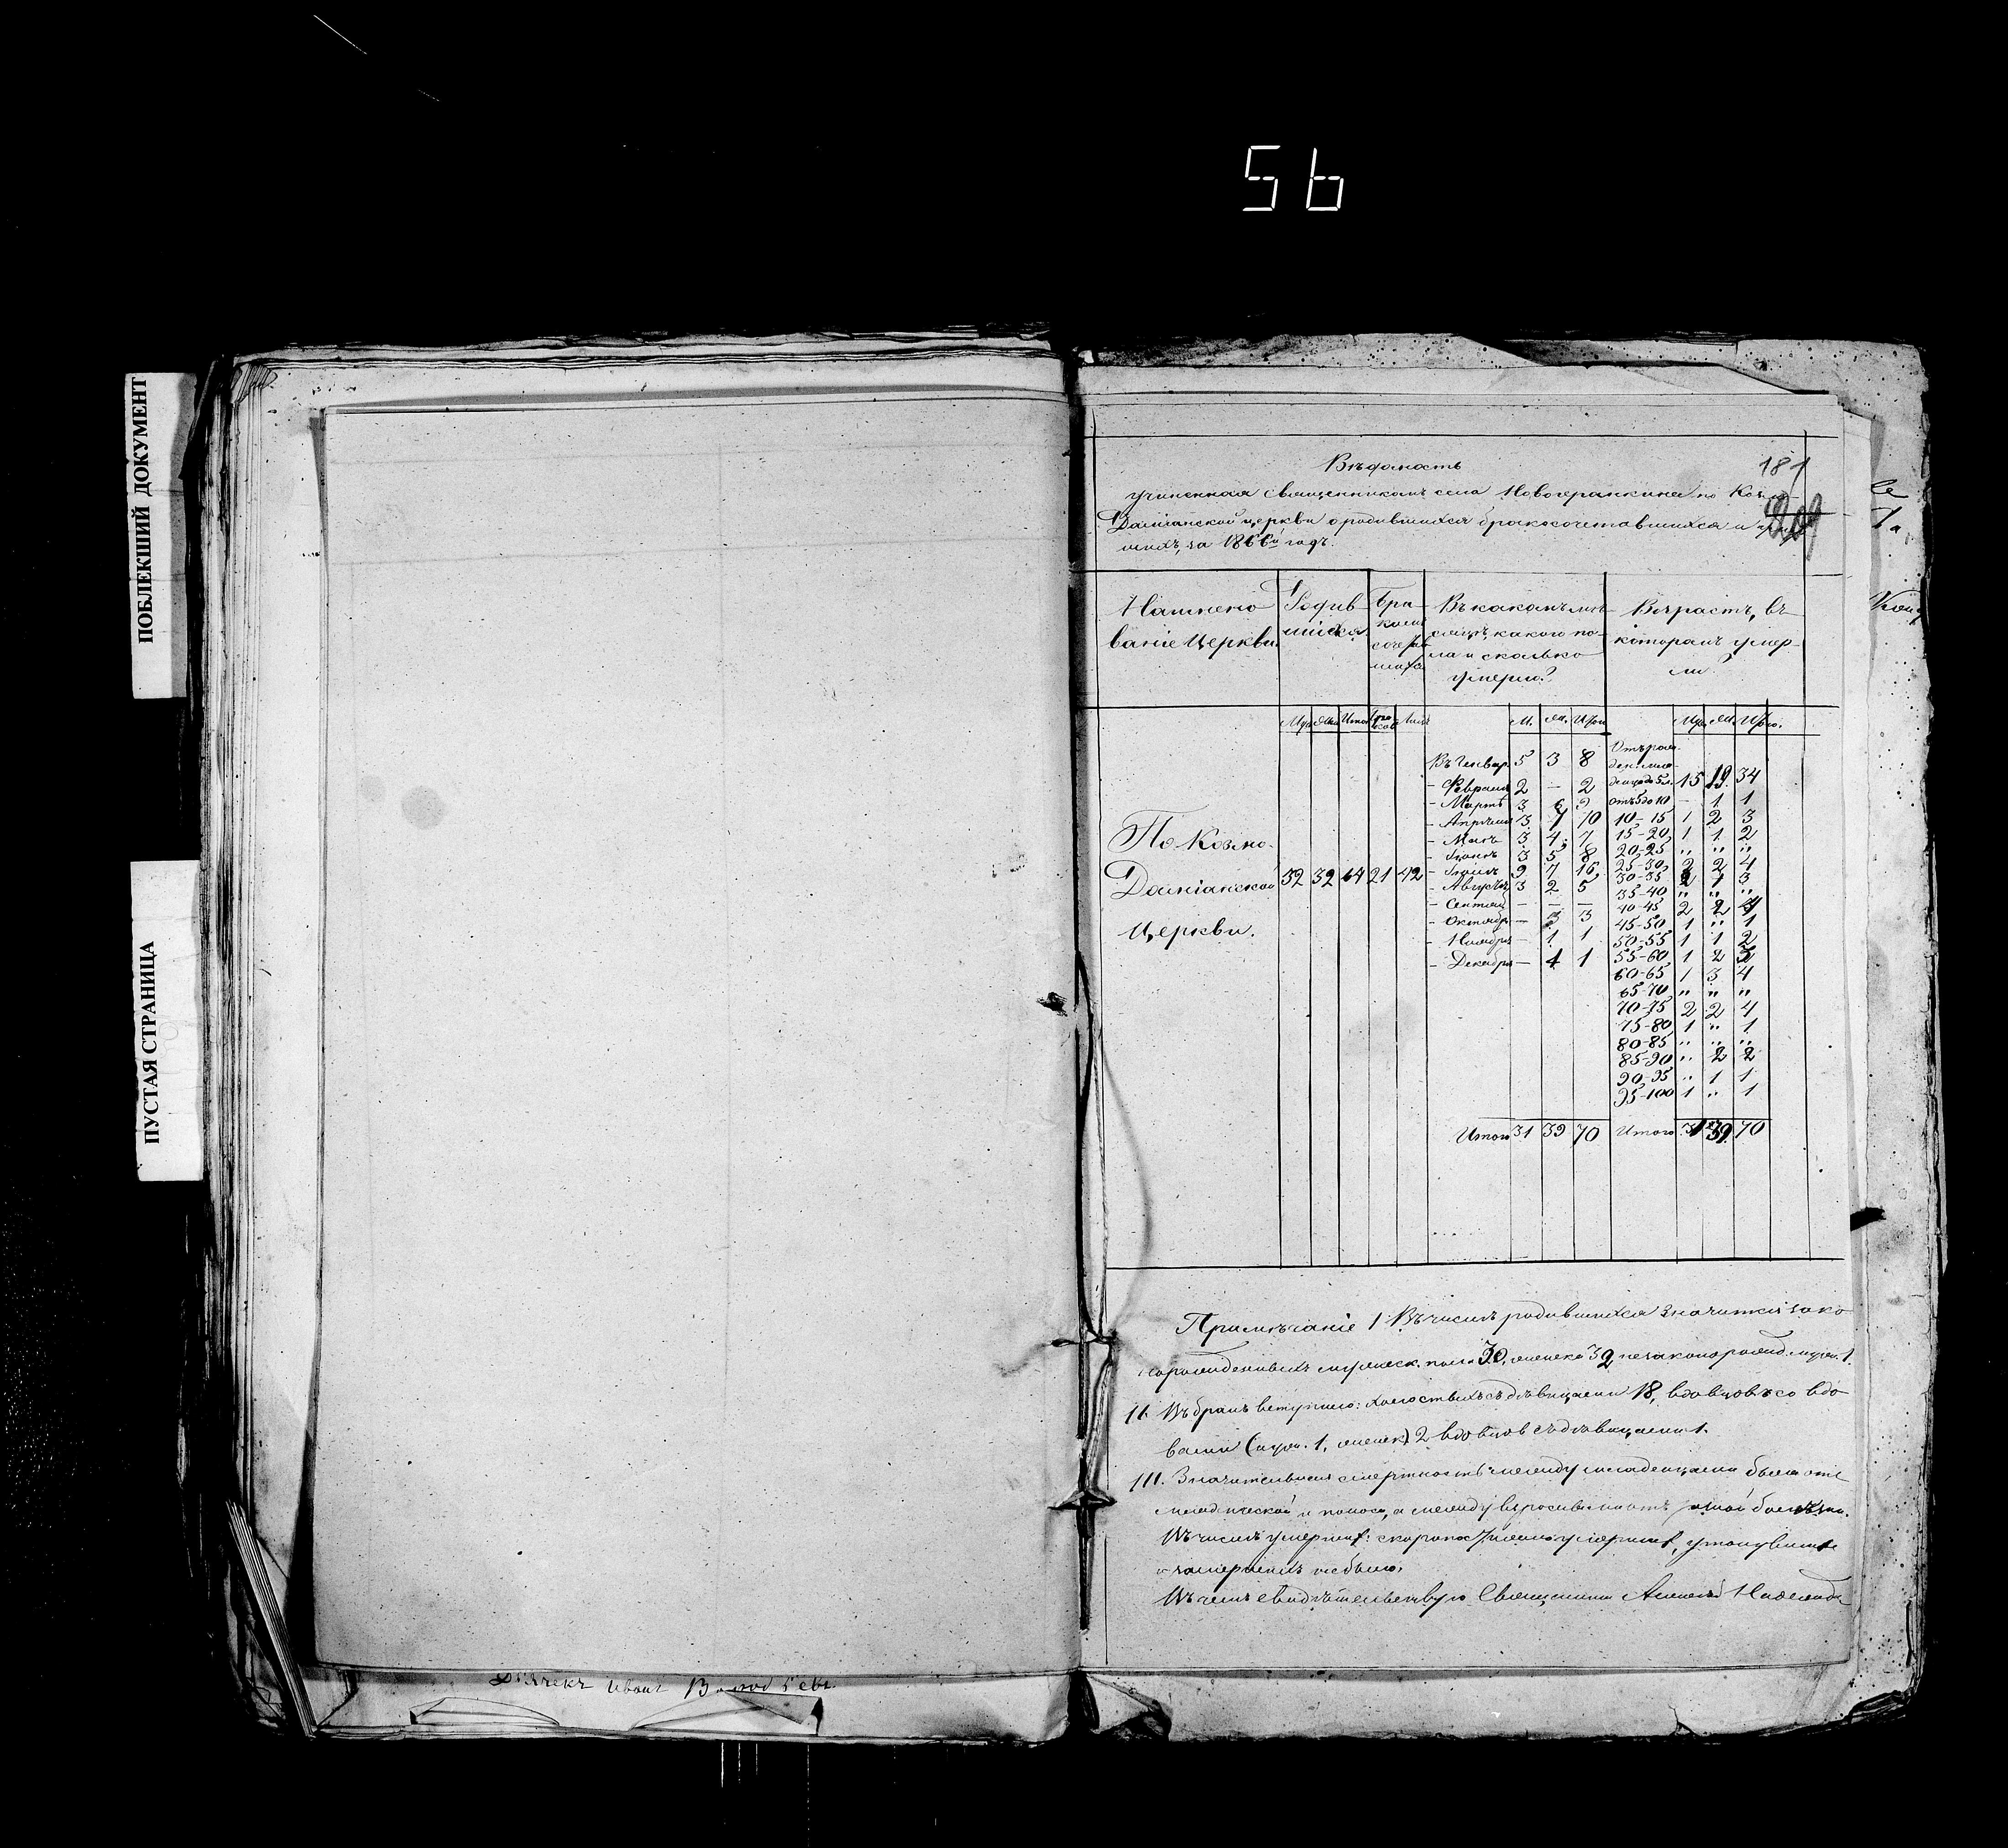 56
ПОБЛЕКШИЙ ДОКУМЕНТ
ПУСТАЯ СТРАНИЦА
Вѣдомость
181
учиненная священникомъ села по Козмо-
Даміанской церкви о родившихся бракосочетавшихся и
за 1866й годъ.
Наимено
ваніе Церкви.
Родив
шихся
Бра
косо
Въ какомъ мѣ-
сяцѣ, какого по-
ла и сколько
умерло?
Возрастъ, въ
которомъ умер-
ли?
М. Ж. Итого
По Козмо-
Даміанской
церкви.
32 32 64 21 42
Въ Генвар. 5 3 8
- Февралѣ 2 — 2
- Мартѣ 3 6 9
- Апрѣлѣ 3 7 10
- Маѣ 3 4 7
- Іюнѣ 3 5 8
- Іюлѣ 9 7 16
- Августѣ 3 2 5
- Сентяб — — —
- Октябр — 3 3
- Ноябрѣ — 1 1
- Декабрѣ — 1 1
Итого 31 39 70
Отъ рож-
до 5 л. 15 19 34
отъ 5 до 10 — 1 1
10-15 1 2 3
15-20 1 1 2
20-25 " " "
25-30 2 2 4
30-35 2 1 3
35-40 " " "
40-45 2 2 4
45-50 1 " 1
50-55 1 1 2
55-60 1 2 3
60-65 1 3 4
65-70 " " "
70-75 2 2 4
75-80 1 " 1
80-85 " " "
85-90 " 2 2
90-95 " 1 1
95-100 1 " 1
Итого 31 39 70
Примѣчаніе 1. Въ числѣ родившихся значится зако
норожденныхъ мужеск. пола 30, женска 32, незаконорожд. муж. 1.
11. Въ бракъ вступило: холостыхъ съ дѣвицами 18, вдовцовъ со вдо
вами 2 вдовцовъ съ дѣвицами 1.
111. Значительная смертность между младенцами была отъ
и поноса, а между взрослыми отъ
Въ числѣ умершихъ: скоропостижно умершихъ, утонувшихъ
и замерзшихъ не было.
Въ чемъ свидѣтельствую Священникъ Алексѣй
Дьячекъ Иванъ